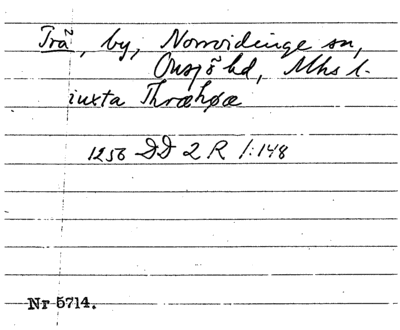 Trä, by, Norrvidinge sn,
Onsjö hd, Mhs l.
iuxta Thræhøæ
1256 DD 2 R 1:148
Nr 5714.